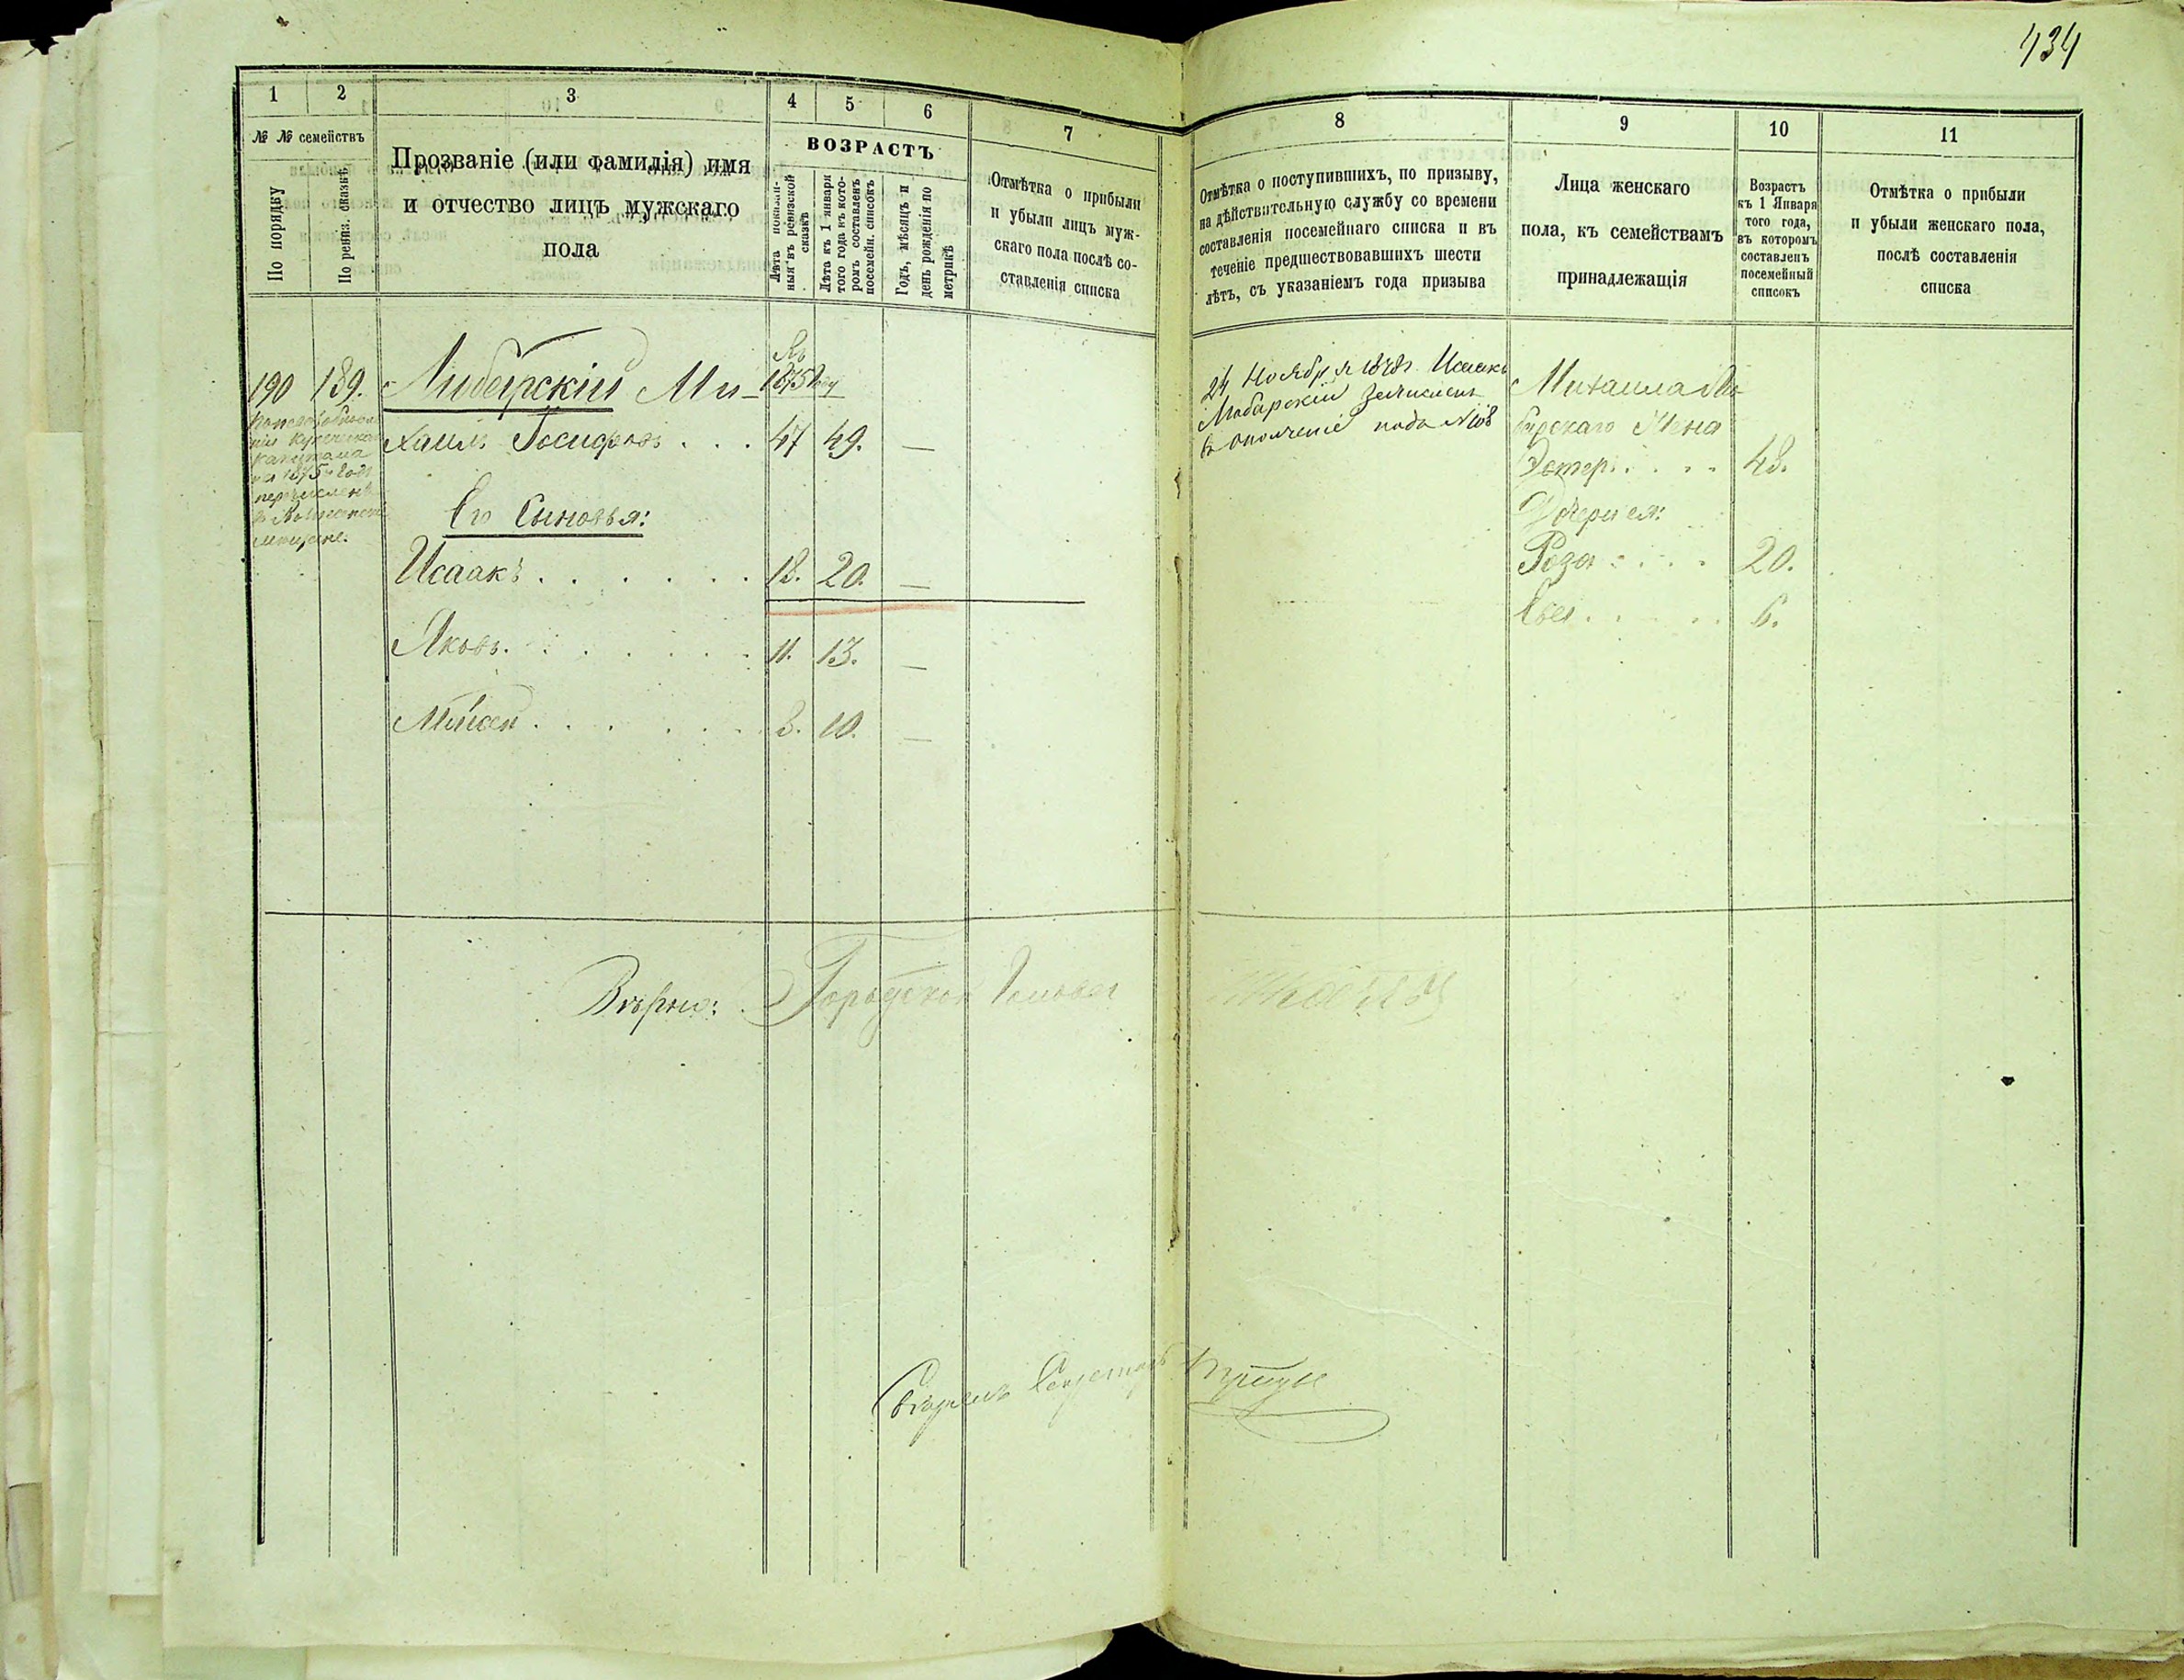 434
1 2 3 4 5 6 7
№ № семействъ
По порядку
По ревиз. сказкѣ
Прозваніе (или фамилія) имя
и отчество лицъ мужскаго
пола
ВОЗРАСТЪ
Лѣта показан-
ныя въ ревизской
сказкѣ
Лѣта къ 1 января
того года въ кото-
ромъ составленъ
посемейн. списокъ
Годъ, мѣсяцъ и
день рожденія по
метрикѣ
Отмѣтка о прибыли
и убыли лицъ муж-
скаго пола послѣ со-
ставленія списка
8 9 10 11
Отмѣтка о поступившихъ, по призыву,
на дѣйствительную службу со времени
составленія посемейнаго списка и въ
теченіе предшествовавшихъ шести
лѣтъ, съ указаніемъ года призыва
Лица женскаго
пола, къ семействамъ
принадлежащія
Возрастъ
къ 1 Января
того года,
въ которомъ
составленъ
посемейный
списокъ
Отмѣтка о прибыли
и убыли женскаго пола,
послѣ составленія
списка
190 189. Либерскій Ми-
1875
хаилъ Іосифовъ . . . 47 49. —
купеческаго
капитала
на 1875 годъ
перечисленъ
мещане.
Его Сыновья:
Исаакъ . . . . . . 18. 20. —
Яковъ . . . . . . 11. 13. —
Моисей . . . . . . 8. 10. —
24 Ноября 1878г. Исаакъ
зачисленъ
въ ополченіе подъ №
Михаила Ли-
берскаго Жена
Эстеръ . . . . 48.
Дочери ея:
Роза . . . . 20.
Ева . . . . . 6.
Вѣрно: Городской Голова
Секретарь